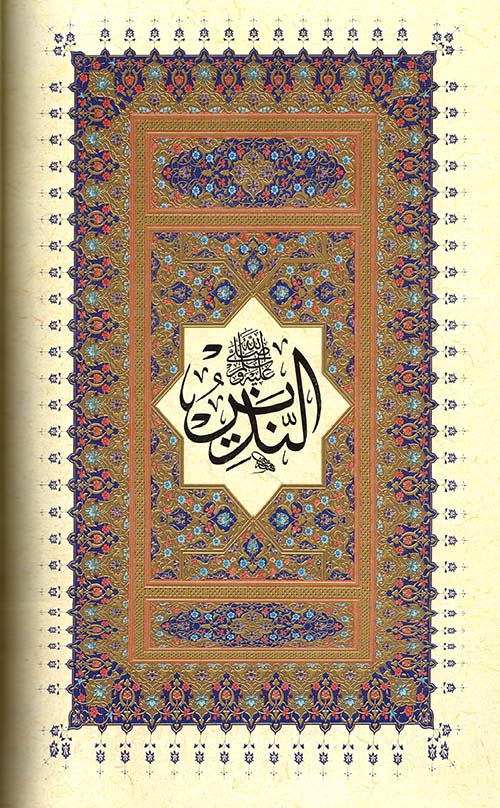 النَّذِيرُ
صلى الله عليه وسلم